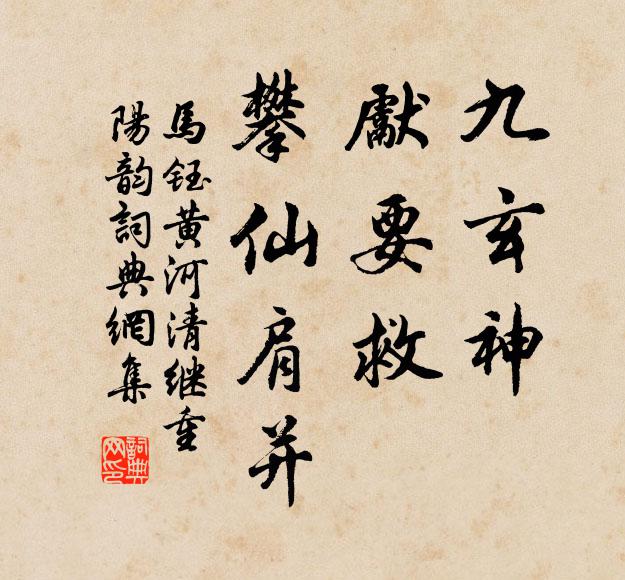 九玄神
獻要救
攀仙肩并
馬鈺黄河清继重
陽韵詞典網集
詞典网印